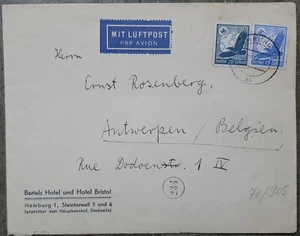 MIT LUFTPOST
PAR AVION
Herrn
Ernst Rosenberg,
Antwerpen / Belgien.
Rue Dodoenstr. 1 IV
Bertels Hotel und Hotel Bristol
Hamburg 1, Steintorwall 5 und 6
(gegenüber dem Hauptbahnhof, Stadtseite)
76/905